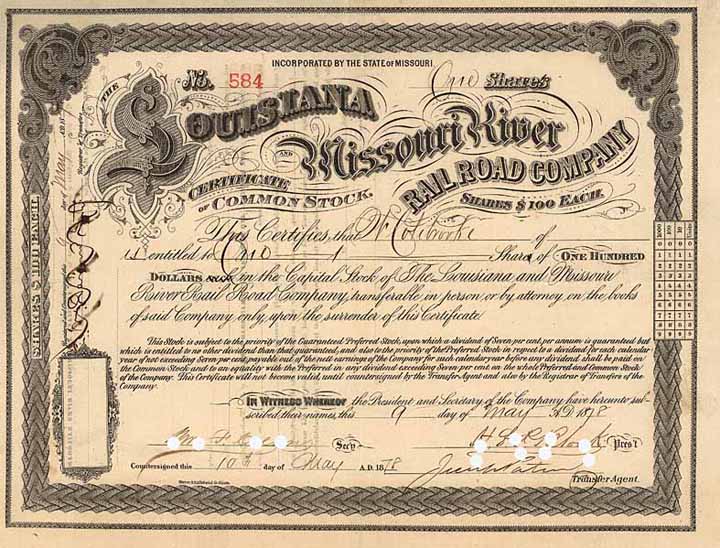 INCORPORATED BY THE STATE OF MISSOURI.
No. 584
One Shares
THE LOUISIANA
AND MISSOURI RIVER
RAIL ROAD COMPANY
CERTIFICATE
OF COMMON STOCK.
SHARES $100 EACH.
This Certifies, that
of
is entitled to One Share of ONE HUNDRED
DOLLARS each in the Capital Stock of The Louisiana and Missouri
River Rail Road Company, transferable in person, or by attorney on the books
of said Company only, upon the surrender of this Certificate.
This Stock is subject to the priority of the Guaranteed Preferred Stock, upon which a dividend of Seven per cent. per annum is guaranteed but
which is entitled to no other dividend than that guaranteed, and also to the priority of the Preferred Stock in respect to a dividend for each calendar
year of not exceeding Seven per cent, payable out of the nett earnings of the Company for such calendar year before any dividend shall be paid on
the Common Stock and to an equality with the Preferred in any dividend exceeding Seven per cent on the whole Preferred and Common Stock
of the Company. This Certificate will not become valid, until countersigned by the Transfer Agent and also by the Registrar of Transfers of the
Company.
IN WITNESS WHEREOF the President and Secretary of the Company have hereunto sub-
scribed their names, this 9 day of May A.D. 1878
Secy
Pres't
Countersigned this 10th day of May A.D. 1878
Transfer Agent.
SHARES $100 EACH.
May
1000 100 10 Units